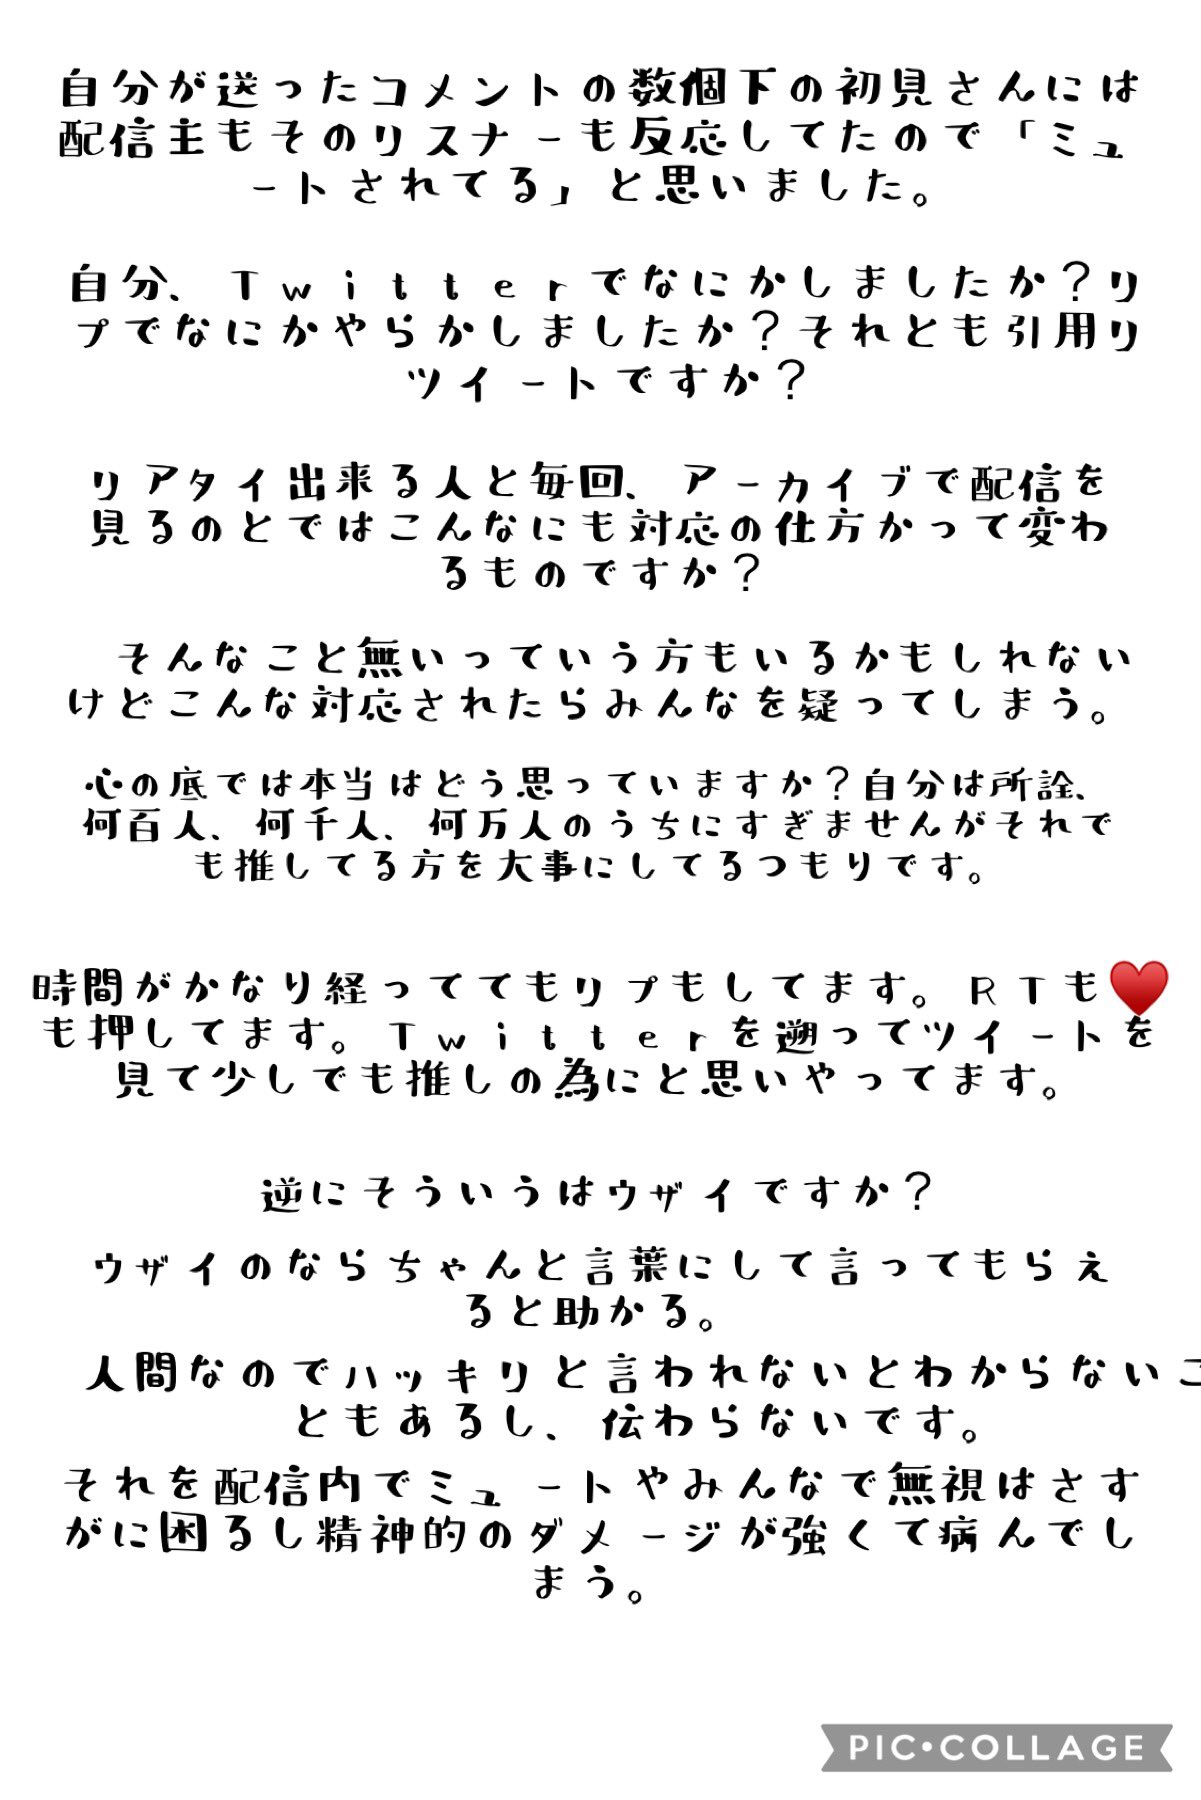 自分が送ったコメントの数個下の初見さんには
配信主もそのリスナーも反応してたので「ミュ
ートされてる」と思いました。
自分、Twitterでなにかしましたか?リ
プでなにかやらかしましたか?それとも引用リ
ツイートですか?
リアタイ出来る人と毎回、アーカイブで配信を
見るのとではこんなにも対応の仕方かって変わ
るものですか?
そんなこと無いっていう方もいるかもしれない
けどこんな対応されたらみんなを疑ってしまう。
心の底では本当はどう思っていますか?自分は所詮、
何百人、何千人、何万人のうちにすぎませんがそれで
も推してる方を大事にしてるつもりです。
時間がかなり経っててもリプもしてます。RTも♥
も押してます。Twitterを遡ってツイートを
見て少しでも推しの為にと思いやってます。
逆にそういうはウザイですか?
ウザイのならちゃんと言葉にして言ってもらえ
ると助かる。
人間なのでハッキリと言われないとわからないこ
ともあるし、伝わらないです。
それを配信内でミュートやみんなで無視はさす
がに困るし精神的のダメージが強くて病んでし
まう。
PIC•COLLAGE